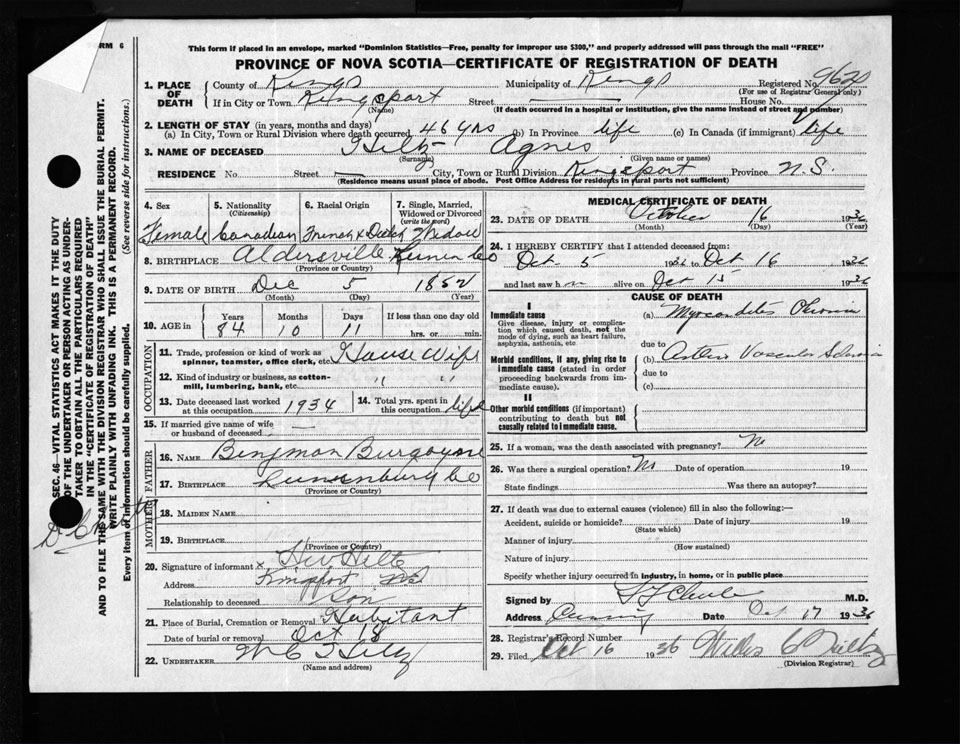 FORM 6
This form if placed in an envelope, marked "Dominion Statistics—Free, penalty for improper use $300," and properly addressed will pass through the mail "FREE"
PROVINCE OF NOVA SCOTIA—CERTIFICATE OF REGISTRATION OF DEATH
1. PLACE OF DEATH County of Kings Municipality of Kings Registered No.
(For use of Registrar General only)
If in City or Town Kingsport Street — House No.
(Name) (If death occurred in a hospital or institution, give the name instead of street and number)
2. LENGTH OF STAY (in years, months and days)
(a) In City, Town or Rural Division where death occurred 46 yrs (b) In Province life (c) In Canada (if immigrant) life
3. NAME OF DECEASED Hiltz Agnes
(Surname) (Given name or names)
RESIDENCE No. Street — City, Town or Rural Division Kingsport Province N.S.
(Residence means usual place of abode. Post Office Address for residents in rural parts not sufficient)
4. Sex
Female
5. Nationality
(Citizenship)
Canadian
6. Racial Origin
French & Dutch
7. Single, Married, Widowed or Divorced
(write the word)
Widow
8. BIRTHPLACE Aldersville Co
(Province or Country)
9. DATE OF BIRTH Dec 5 1852
(Month) (Day) (Year)
10. AGE in
Years Months Days If less than one day old
84 10 11 hrs. or min.
OCCUPATION
11. Trade, profession or kind of work as spinner, teamster, office clerk, etc. House Wife
12. Kind of industry or business, as cotton-mill, lumbering, bank, etc. " "
13. Date deceased last worked at this occupation 1934
14. Total yrs. spent in this occupation life
15. If married give name of wife or husband of deceased —
FATHER
16. NAME Benjman Burgoyne
17. BIRTHPLACE Lunenburg Co
(Province or Country)
MOTHER
18. MAIDEN NAME
19. BIRTHPLACE
(Province or Country)
20. Signature of informant x Hiltz
Address Kingsport NS
Relationship to deceased Son
21. Place of Burial, Cremation or Removal Habitant
Date of burial or removal Oct 18
22. UNDERTAKER W C Hiltz
(Name and address)
MEDICAL CERTIFICATE OF DEATH
23. DATE OF DEATH October 16 1936
(Month) (Day) (Year)
24. I HEREBY CERTIFY that I attended deceased from:
Oct 5 1936 to Oct 16 1936
and last saw h alive on Oct 15 1936
CAUSE OF DEATH
I
Immediate cause
Give disease, injury or complication which caused death, not the mode of dying, such as heart failure, asphyxia, asthenia, etc.
(a) Myocarditis Chronic
due to
Morbid conditions, if any, giving rise to immediate cause (stated in order proceeding backwards from immediate cause).
(b) Arterio Vascular Sclerosis
due to
(c)
II
Other morbid conditions (if important) contributing to death but not causally related to immediate cause.
25. If a woman, was the death associated with pregnancy? No
26. Was there a surgical operation? No Date of operation 19
State findings Was there an autopsy?
27. If death was due to external causes (violence) fill in also the following:—
Accident, suicide or homicide? Date of injury 19
(State which)
Manner of injury
(How sustained)
Nature of injury
Specify whether injury occurred in industry, in home, or in public place
Signed by M.D.
Address Canning Date Oct 17 1936
28. Registrar's Record Number
29. Filed Oct 16 1936
(Division Registrar)
SEC. 46—VITAL STATISTICS ACT MAKES IT THE DUTY
OF THE UNDERTAKER OR PERSON ACTING AS UNDER-
TAKER TO OBTAIN ALL THE PARTICULARS REQUIRED
IN THE "CERTIFICATE OF REGISTRATION OF DEATH"
AND TO FILE THE SAME WITH THE DIVISION REGISTRAR WHO SHALL ISSUE THE BURIAL PERMIT.
WRITE PLAINLY WITH UNFADING INK. THIS IS A PERMANENT RECORD.
Every item of information should be carefully supplied. (See reverse side for instructions.)